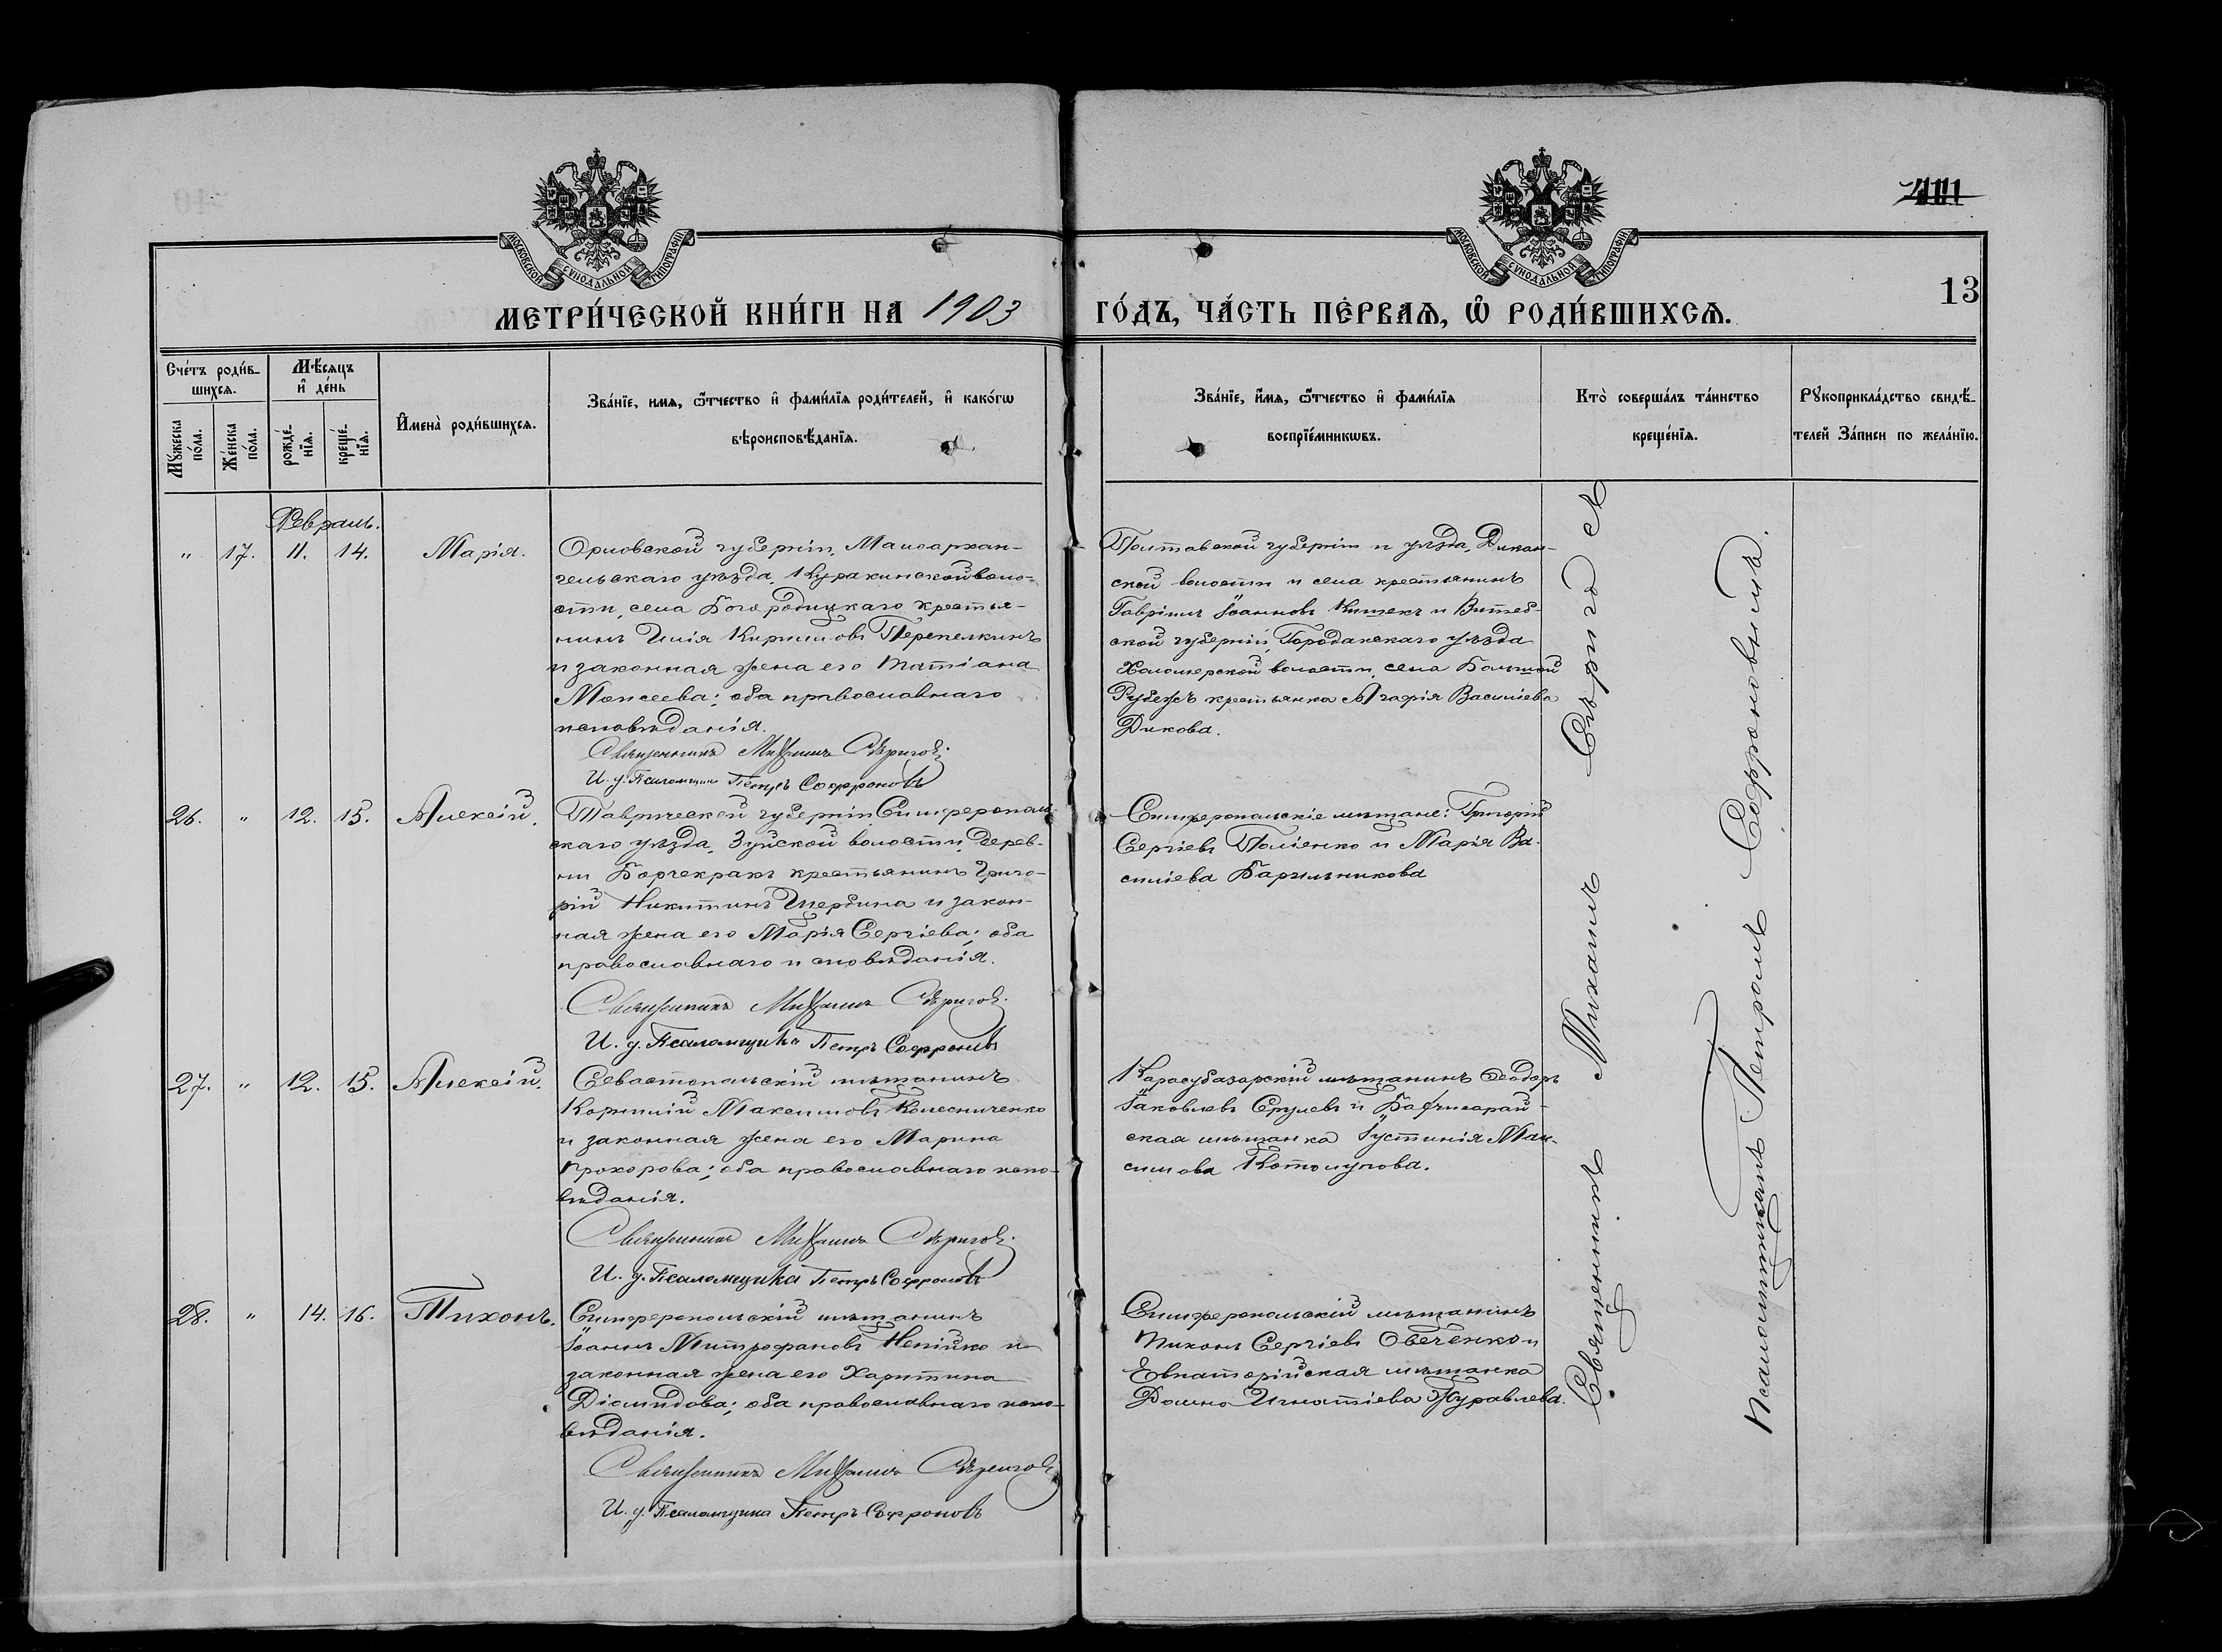 411
13
МОСКОВСКОЙ СѴНОДАЛЬНОЙ ТИПОГРАФІИ
МОСКОВСКОЙ СѴНОДАЛЬНОЙ ТИПОГРАФІИ
МЕТРИ́ЧЕСКОЙ КНИ́ГИ НА 1903 ГО́ДЪ, ЧА́СТЬ ПЕ́РВАѦ, Ѡ҆ РОДИ́ВШИХСѦ.
Сче́тъ роди́в-
шихсѧ.
Мꙋ́жеска по́ла.
Же́нска по́ла.
Мѣ́сѧцъ
и҆ де́нь
рожде́-
нїѧ.
креще́-
нїѧ.
И҆мена̀ роди́вшихсѧ.
Зва́нїе, имѧ, ѻ҆́тчество и҆ фами́лїѧ роди́телей, и҆ како́гѡ
вѣроисповѣ́данїѧ.
Зва́нїе, и҆́мѧ, ѻ҆́тчество и҆ фами́лїѧ
воспрїе́мникѡвъ.
Кто̀ соверша́лъ та́инство
креще́нїѧ.
Рꙋкоприкла́дство свидѣ́-
телей За́писи по жела́нїю.
Февраль.
" 17. 11. 14. Марія.
Орловской губерніи, Малоархан-
гельскаго уѣзда, Куракинской воло-
сти, села Богородицкаго крестья-
нинъ Илія Кирилловъ Перепелкинъ
и законная жена его Татіана
Моисеева; оба православнаго
исповѣданія.
Священникъ Михаилъ Сѣриговъ
И. д. Псаломщика Петръ Софроновъ
Полтавской губерніи и уѣзда, Дикан-
ской волости и села крестьянинъ
Гавріилъ Іоанновъ Кишекъ и Витеб-
ской губерніи, Городокскаго уѣзда
Холомерской волости, села Большой
Рубежъ крестьянка Агафія Василіева
Дикова.
26. " 12. 15. Алексій.
Таврической губерніи Симферополь-
скаго уѣзда, Зуйской волости, дерев-
ни Борчекракъ крестьянинъ Григо-
рій Никитинъ Щербина и закон-
ная жена его Марія Сергіева; оба
православнаго исповѣданія.
Священникъ Михаилъ Сѣриговъ
И. д. Псаломщика Петръ Софроновъ
Симферопольскіе мѣщане: Григорій
Сергіевъ Поліенко и Марія Ва-
силіева Барыльникова
27. " 12. 15. Алексій.
Севастопольскій мѣщанинъ
Корнилій Максимовъ Колесниченко
и законная жена его Марина
Прохорова; оба православнаго испо-
вѣданія.
Священникъ Михаилъ Сѣриговъ
И. д. Псаломщика Петръ Софроновъ
Карасубазарскій мѣщанинъ Ѳеодоръ
Іаковлевъ Срулевъ и Бахчисарай-
ская мѣщанка Іустинія Мак-
симова Котолупова.
28. " 14. 16. Тихонъ.
Симферопольскій мѣщанинъ
Іоаннъ Митрофановъ Непійко и
законная жена его Харитина
Діомидова; оба православнаго испо-
вѣданія.
Священникъ Михаилъ Сѣриговъ
И. д. Псаломщика Петръ Софроновъ
Симферопольскій мѣщанинъ
Тихонъ Сергіевъ Овеченко и
Евпаторійская мѣщанка
Домна Игнатіева Журавлева.
Священникъ Михаилъ Сѣриговъ съ
Псаломщикомъ Петромъ Софроновымъ.